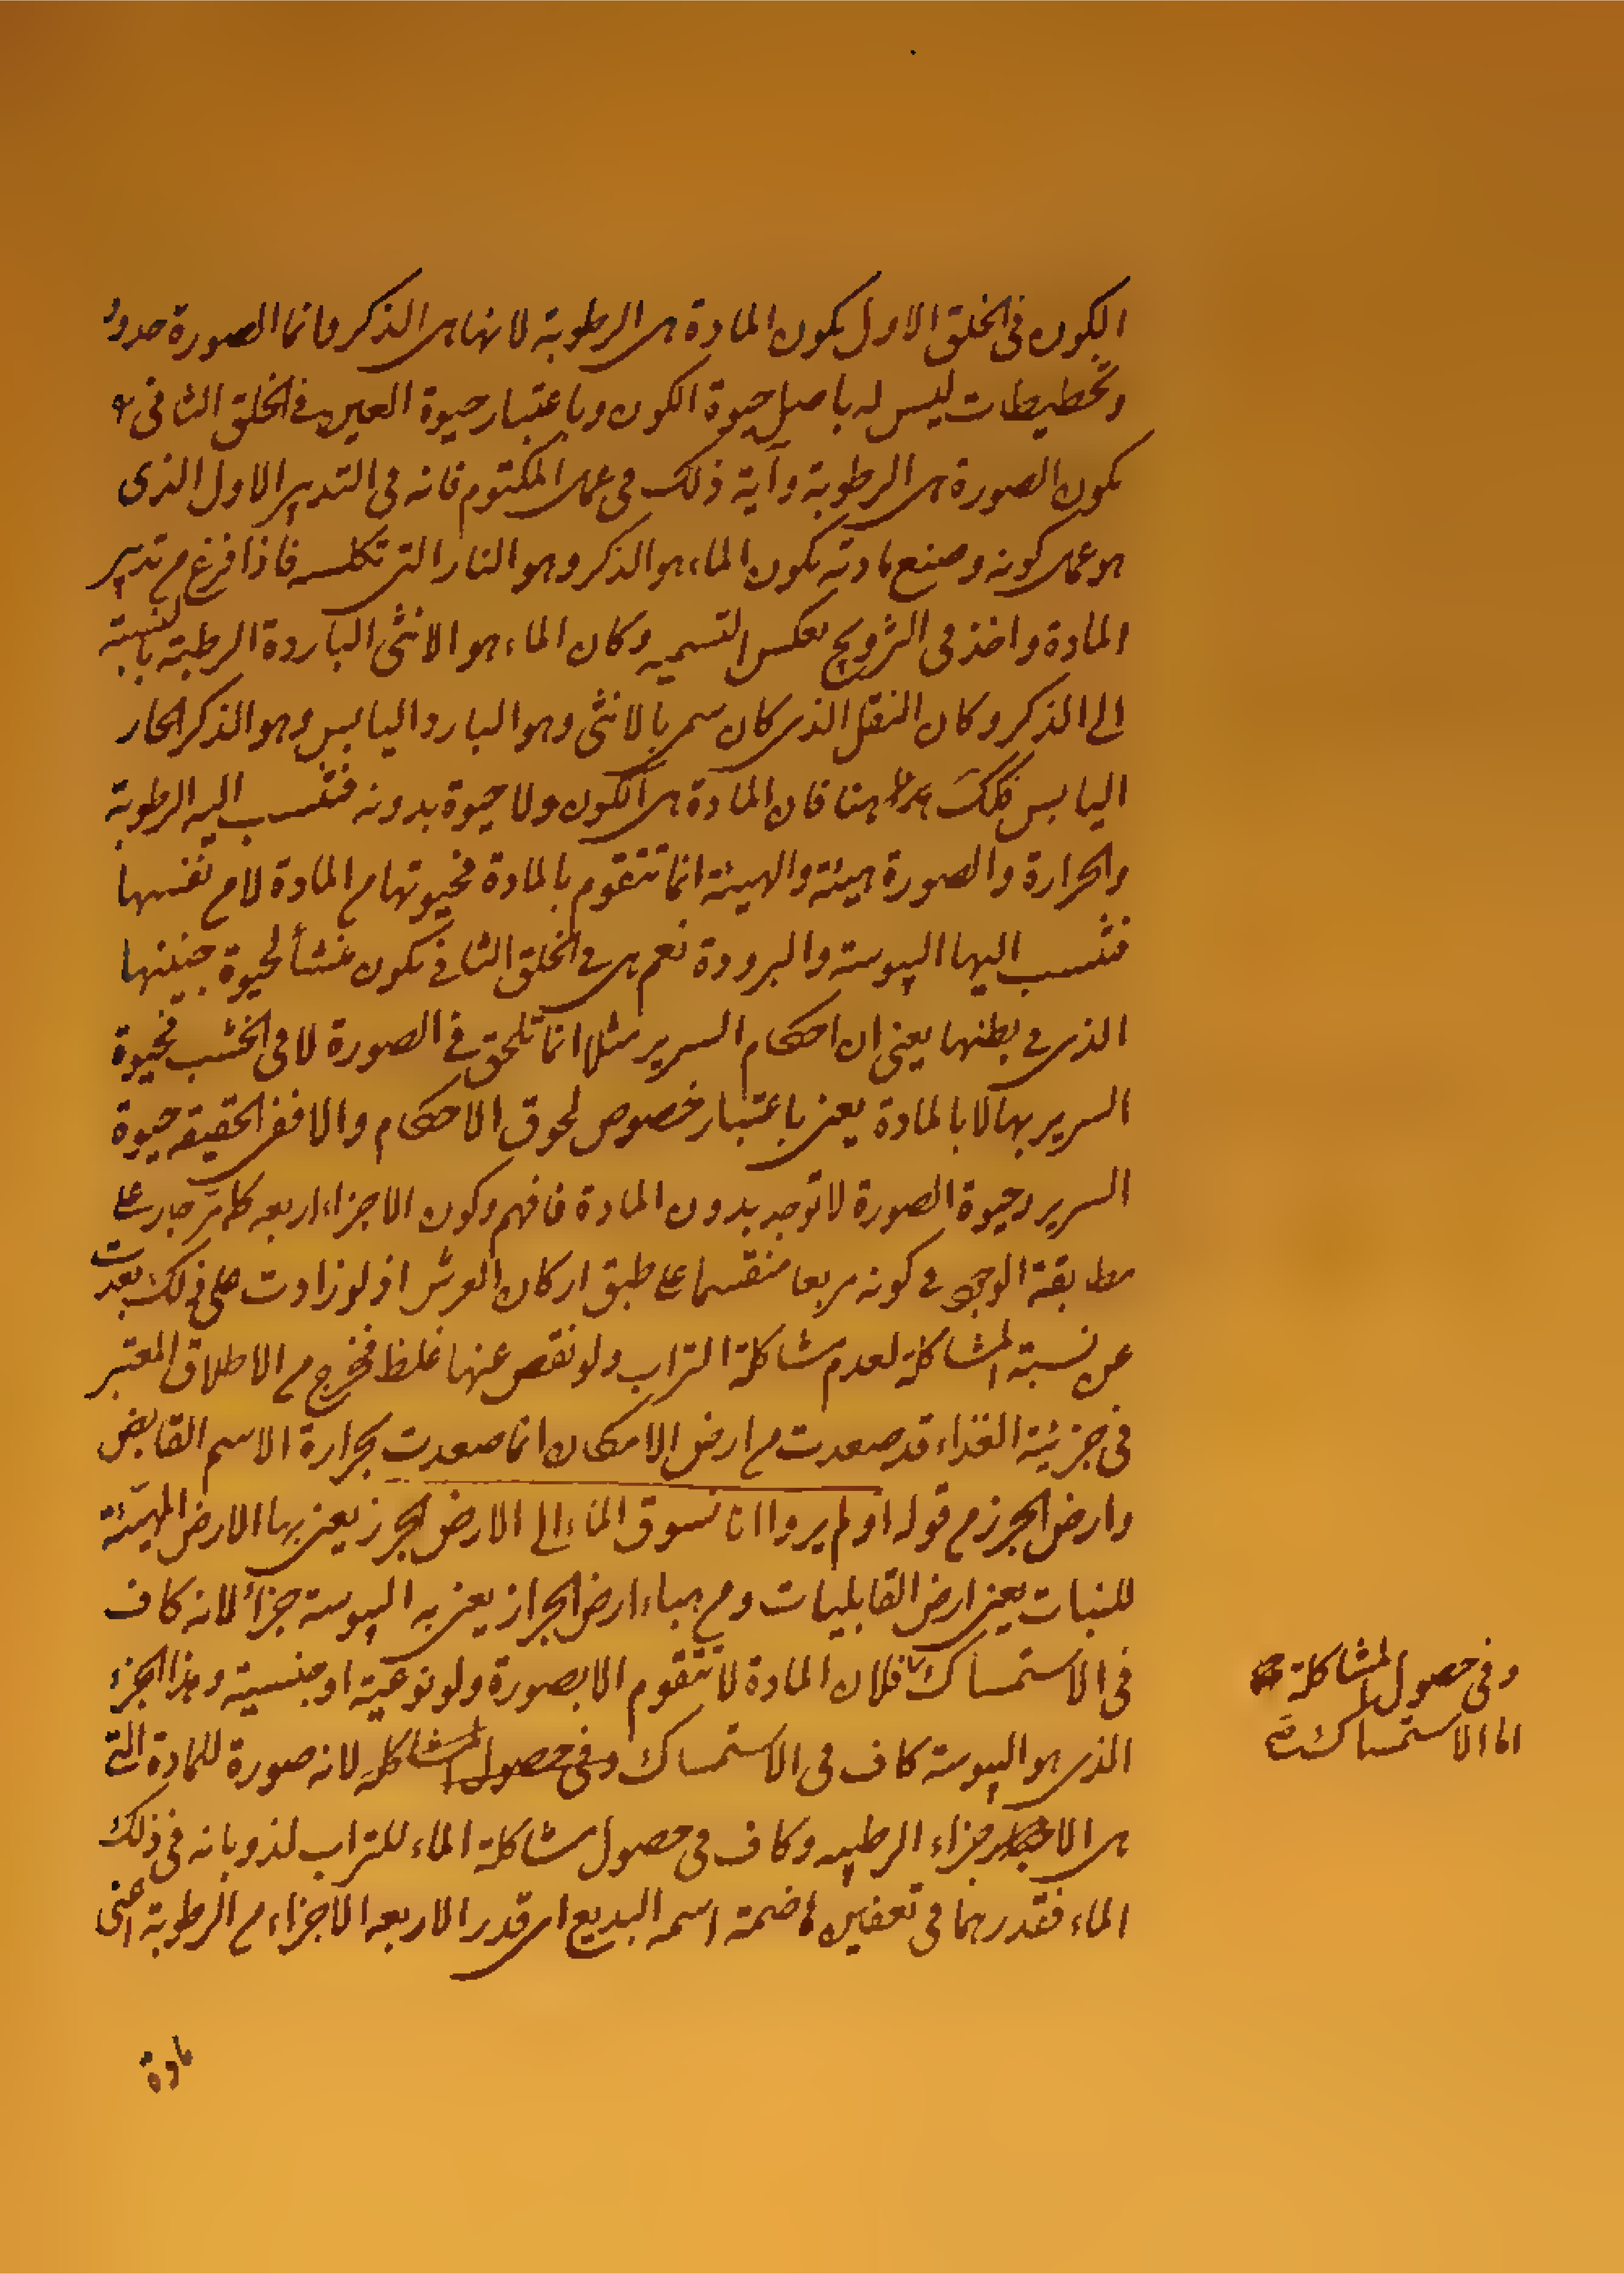 الكون فى الخلق الاول يكون المادة هى الرطوبة لانها هى الذكر وانما الصورة حدود
وتخطيطات ليس له باصل حيوة الكون وباعتبار حيوة العين فى الخلق الثانى
يكون الصورة هى الرطوبة وآية ذلك فى عمل المكتوم فانه فى التدبير الاول الذى
هو عمل كونه وصنع مادته يكون الماء هو الذكر وهو النار التى تكلسه فاذا فرغ من تدبير
المادة واخذ فى التزويج بعكس التسميه وكان الماء هو الانثى الباردة الرطبة بالنسبة
الى الذكر وكان الثفل الذى كان سمى بالانثى وهو البارد اليابس وهو الذكر الحار
اليابس فكك هنا فان المادة هى الكون ولا حيوة بدونه فتنسب اليه الرطوبة
والحرارة والصورة هيئة والهيئة انما تتقوم بالمادة فحيوتها من المادة لا من نفسها
فتنسب اليها اليبوسة والبرودة نعم هى فى الخلق الثانى تكون منشأ لحيوة جنينها
الذى فى بطنها يعنى ان احكام السرير مثلا انما تلحق فى الصورة لا فى الخشب فحيوة
السرير بها لا بالمادة يعنى باعتبار خصوص لحوق الاحكام والا ففى الحقيقة حيوة
السرير وحيوة الصورة لا توجد بدون المادة فافهم وكون الاجزاء اربعه كما مر جار على
مطابقة الوجود فى كونه مربعا منقسما على طبق اركان العرش اذ لو زادت على ذلك بعدت
عن نسبة المشاكلة لعدم مشاكلة التراب ولو نقص عنها غلظ فخرج من الاطلاق المعتبر
فى جزئية الغذاء قد صعدت من ارض الامكان انما صعدت بحرارة الاسم القابض
وارض الجرز من قوله اولم يروا انا نسوق الماء الى الارض الجرز يعنى بها الارض المهيئة
للنبات يعنى ارض القابليات ومن هباء ارض الجراز يعنى به اليبوسة جزأ لانه كاف
فى الاستمساك فلان المادة لا تتقوم الا بصورة ولو نوعية او جنسية وهذا الجزء
الذى هو اليبوسة كاف فى الاستمساك وفى حصول المشاكله لانه صورة للمادة التى
هى الاجزاء الرطبه وكاف فى حصول مشاكلة الماء للتراب لذوبانه فى ذلك
الماء فقدرهما فى تعفين هاضمة اسمه البديع اى قدر الاربعه الاجزاء من الرطوبة اعنى
مادة
وفى حصول المشاكلة
اما الاستمساك